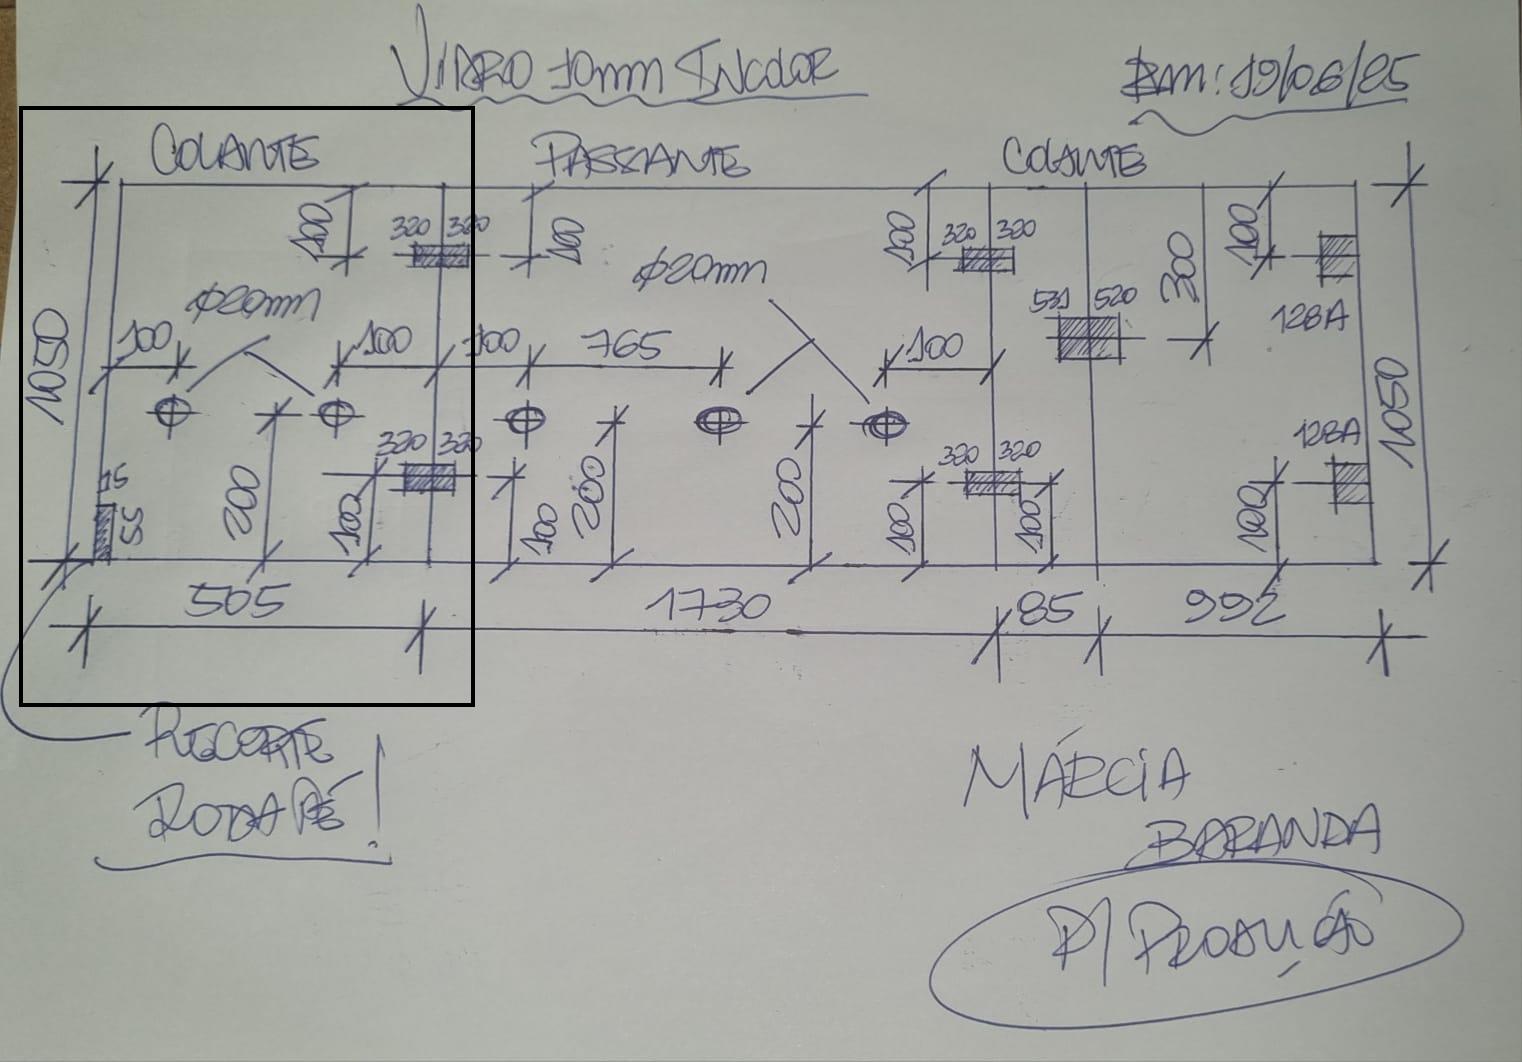 VIDRO 10mm INCOLOR
Em: 19/06/25
COLANTE
PASSANTE
COLANTE
100
320 320
100
100
320 320
100
300
128A
531 520
Ø20mm
Ø20mm
1050
100
100
100
765
100
1050
320 320
320 320
128A
15
55
200
100
100
200
200
100
100
100
505
1730
85
992
RECORTE
RODAPÉ!
MÁRCIA
BARANDA
P/ PRODUÇÃO